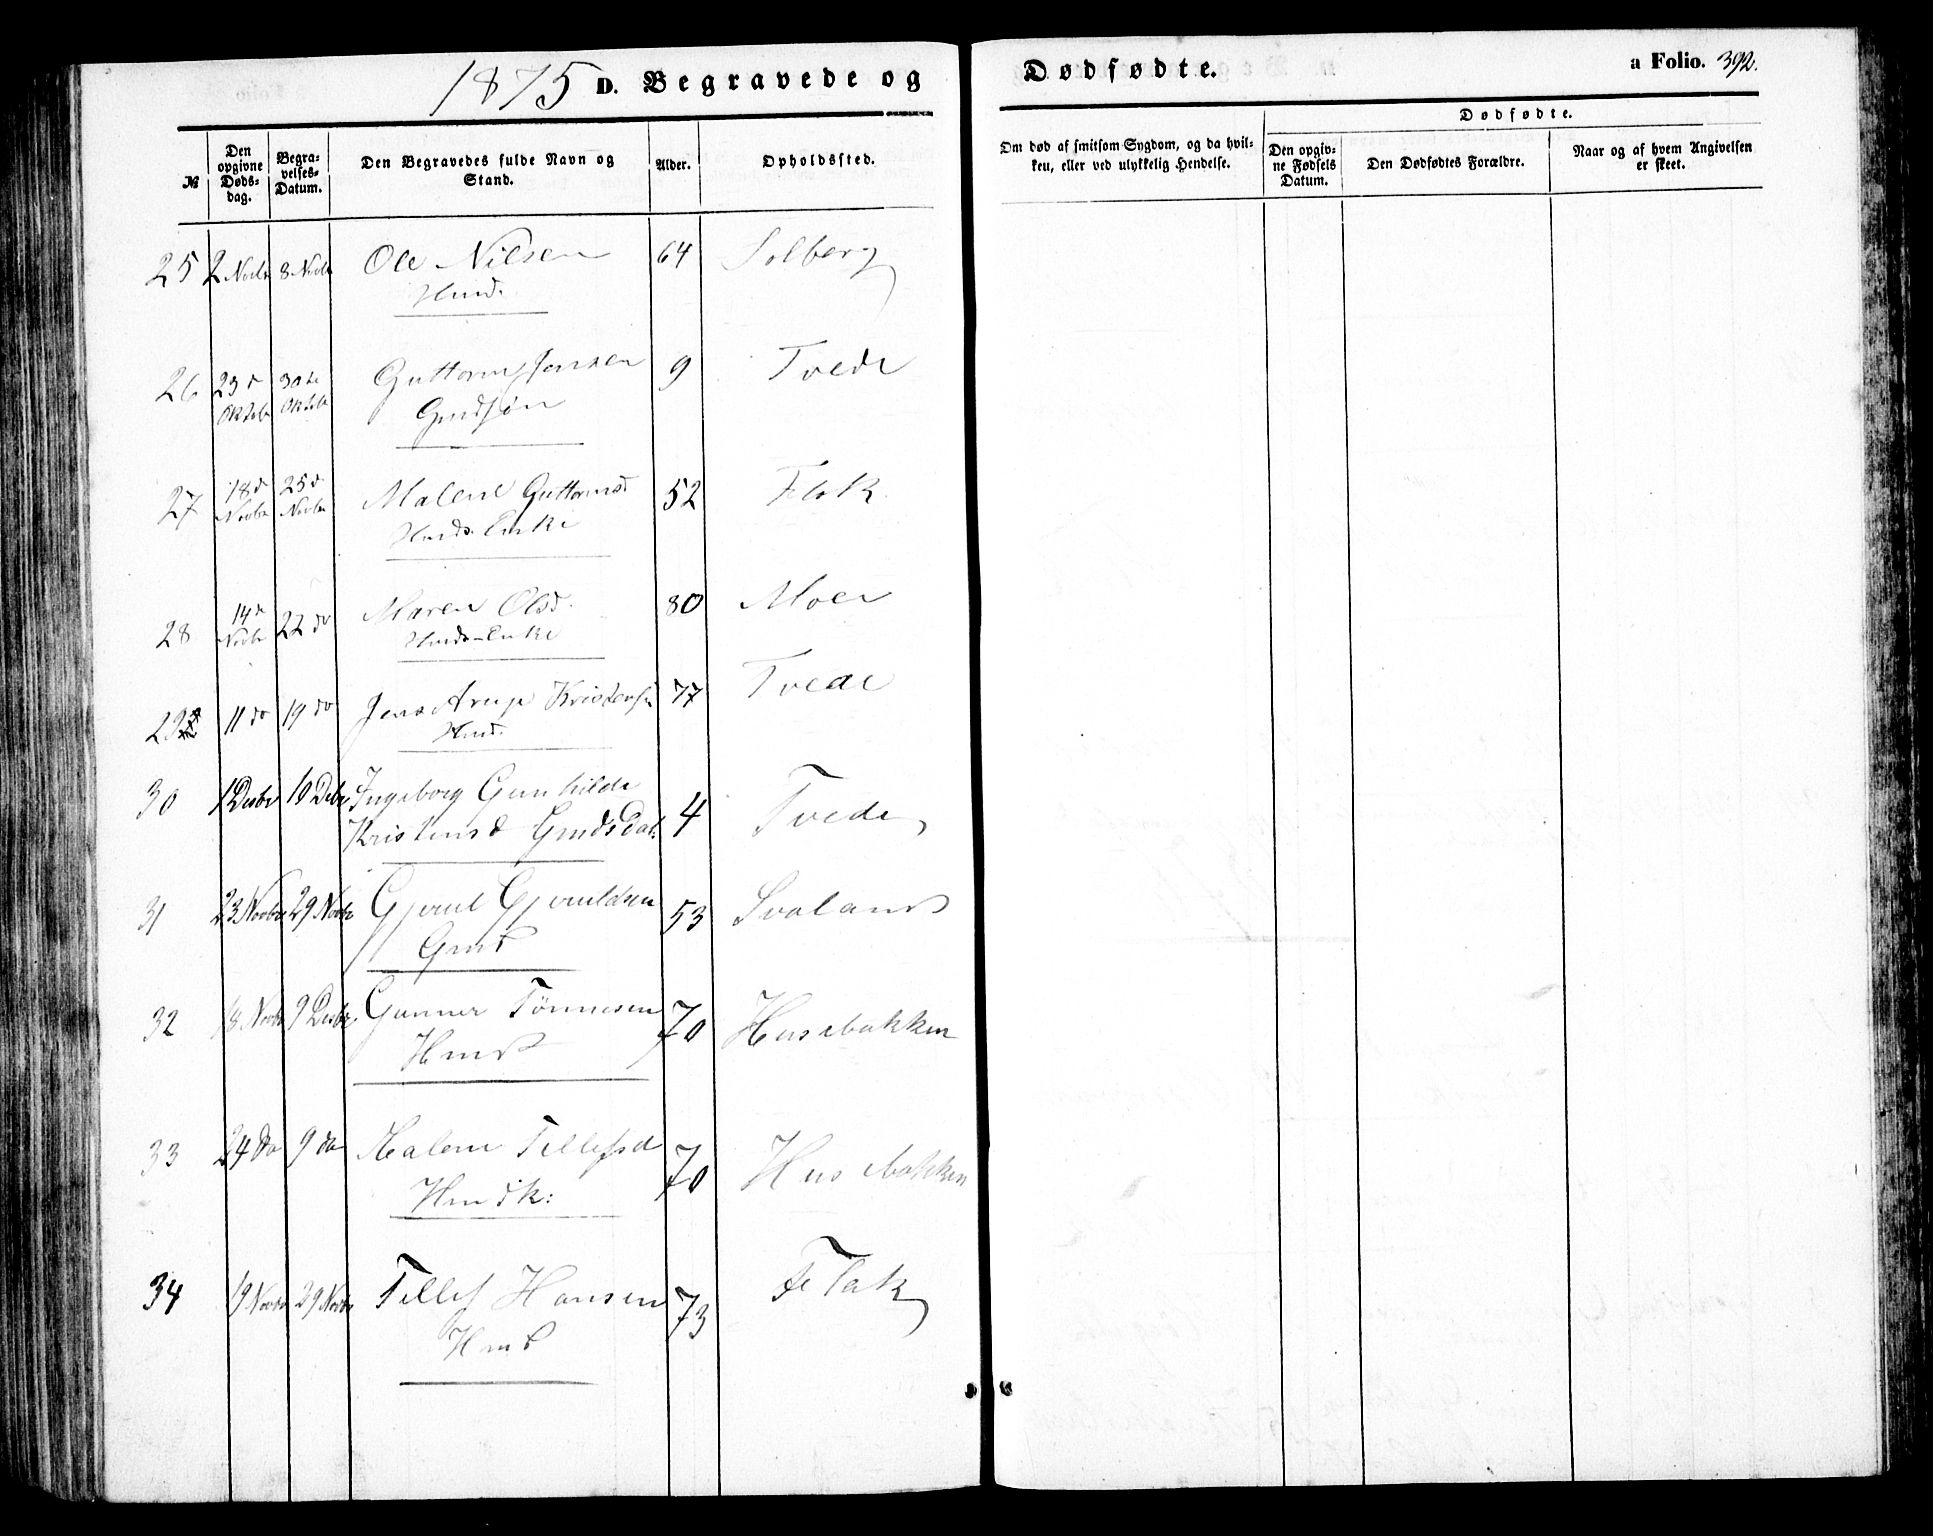 1875 D. Begravede og Dødfødte. a Folio. 392.
№
Den opgivne Døds-dag.
Begra-velses-Datum.
Den Begravedes fulde Navn og Stand.
Alder.
Opholdssted.
Om død af smitsom Sygdom, og da hvil-ken, eller ved ulykkelig Hendelse.
Dødfødte.
Den opgiv-ne Fødsels Datum.
Den Dødfødtes Forældre.
Naar og af hvem Angivelsen er skeet.
25 2 Novbr 8 Novbr Ole Nilsen 64 Solberg
Hmd.
26 23d Oktobr 30te Oktobr Guttorm Jensen 9 Tvede
Gmdsøn
27 18d Novbr 25d Novbr Malene Guttormsd 52 Flak
Hmds. Enke
28 14d Novbr 22 do Maren Olsd. 80 Moen
Hmds-Enke
29 11 do 19 do Jens Arup Kristensen 77 Tvede
Hmd.
30 1 Desbr 10 Debr Ingeborg Gunhilde
Kristensd Gmdsdat: 4 Tvede
31 23 Novbr 29 Novbr Gjeruld Gjeruldsen 53 Svaland
Gmd
32 18 Novbr 9 Desbr Gunner Tønnesen 70 Husebakken
Hmd
33 24 do 9 do Malene Tellefsd 70 Husebakken
Hmdk:
34 19 Novbr 29 Novbr Tellef Hansen 73 Flak
Hmd